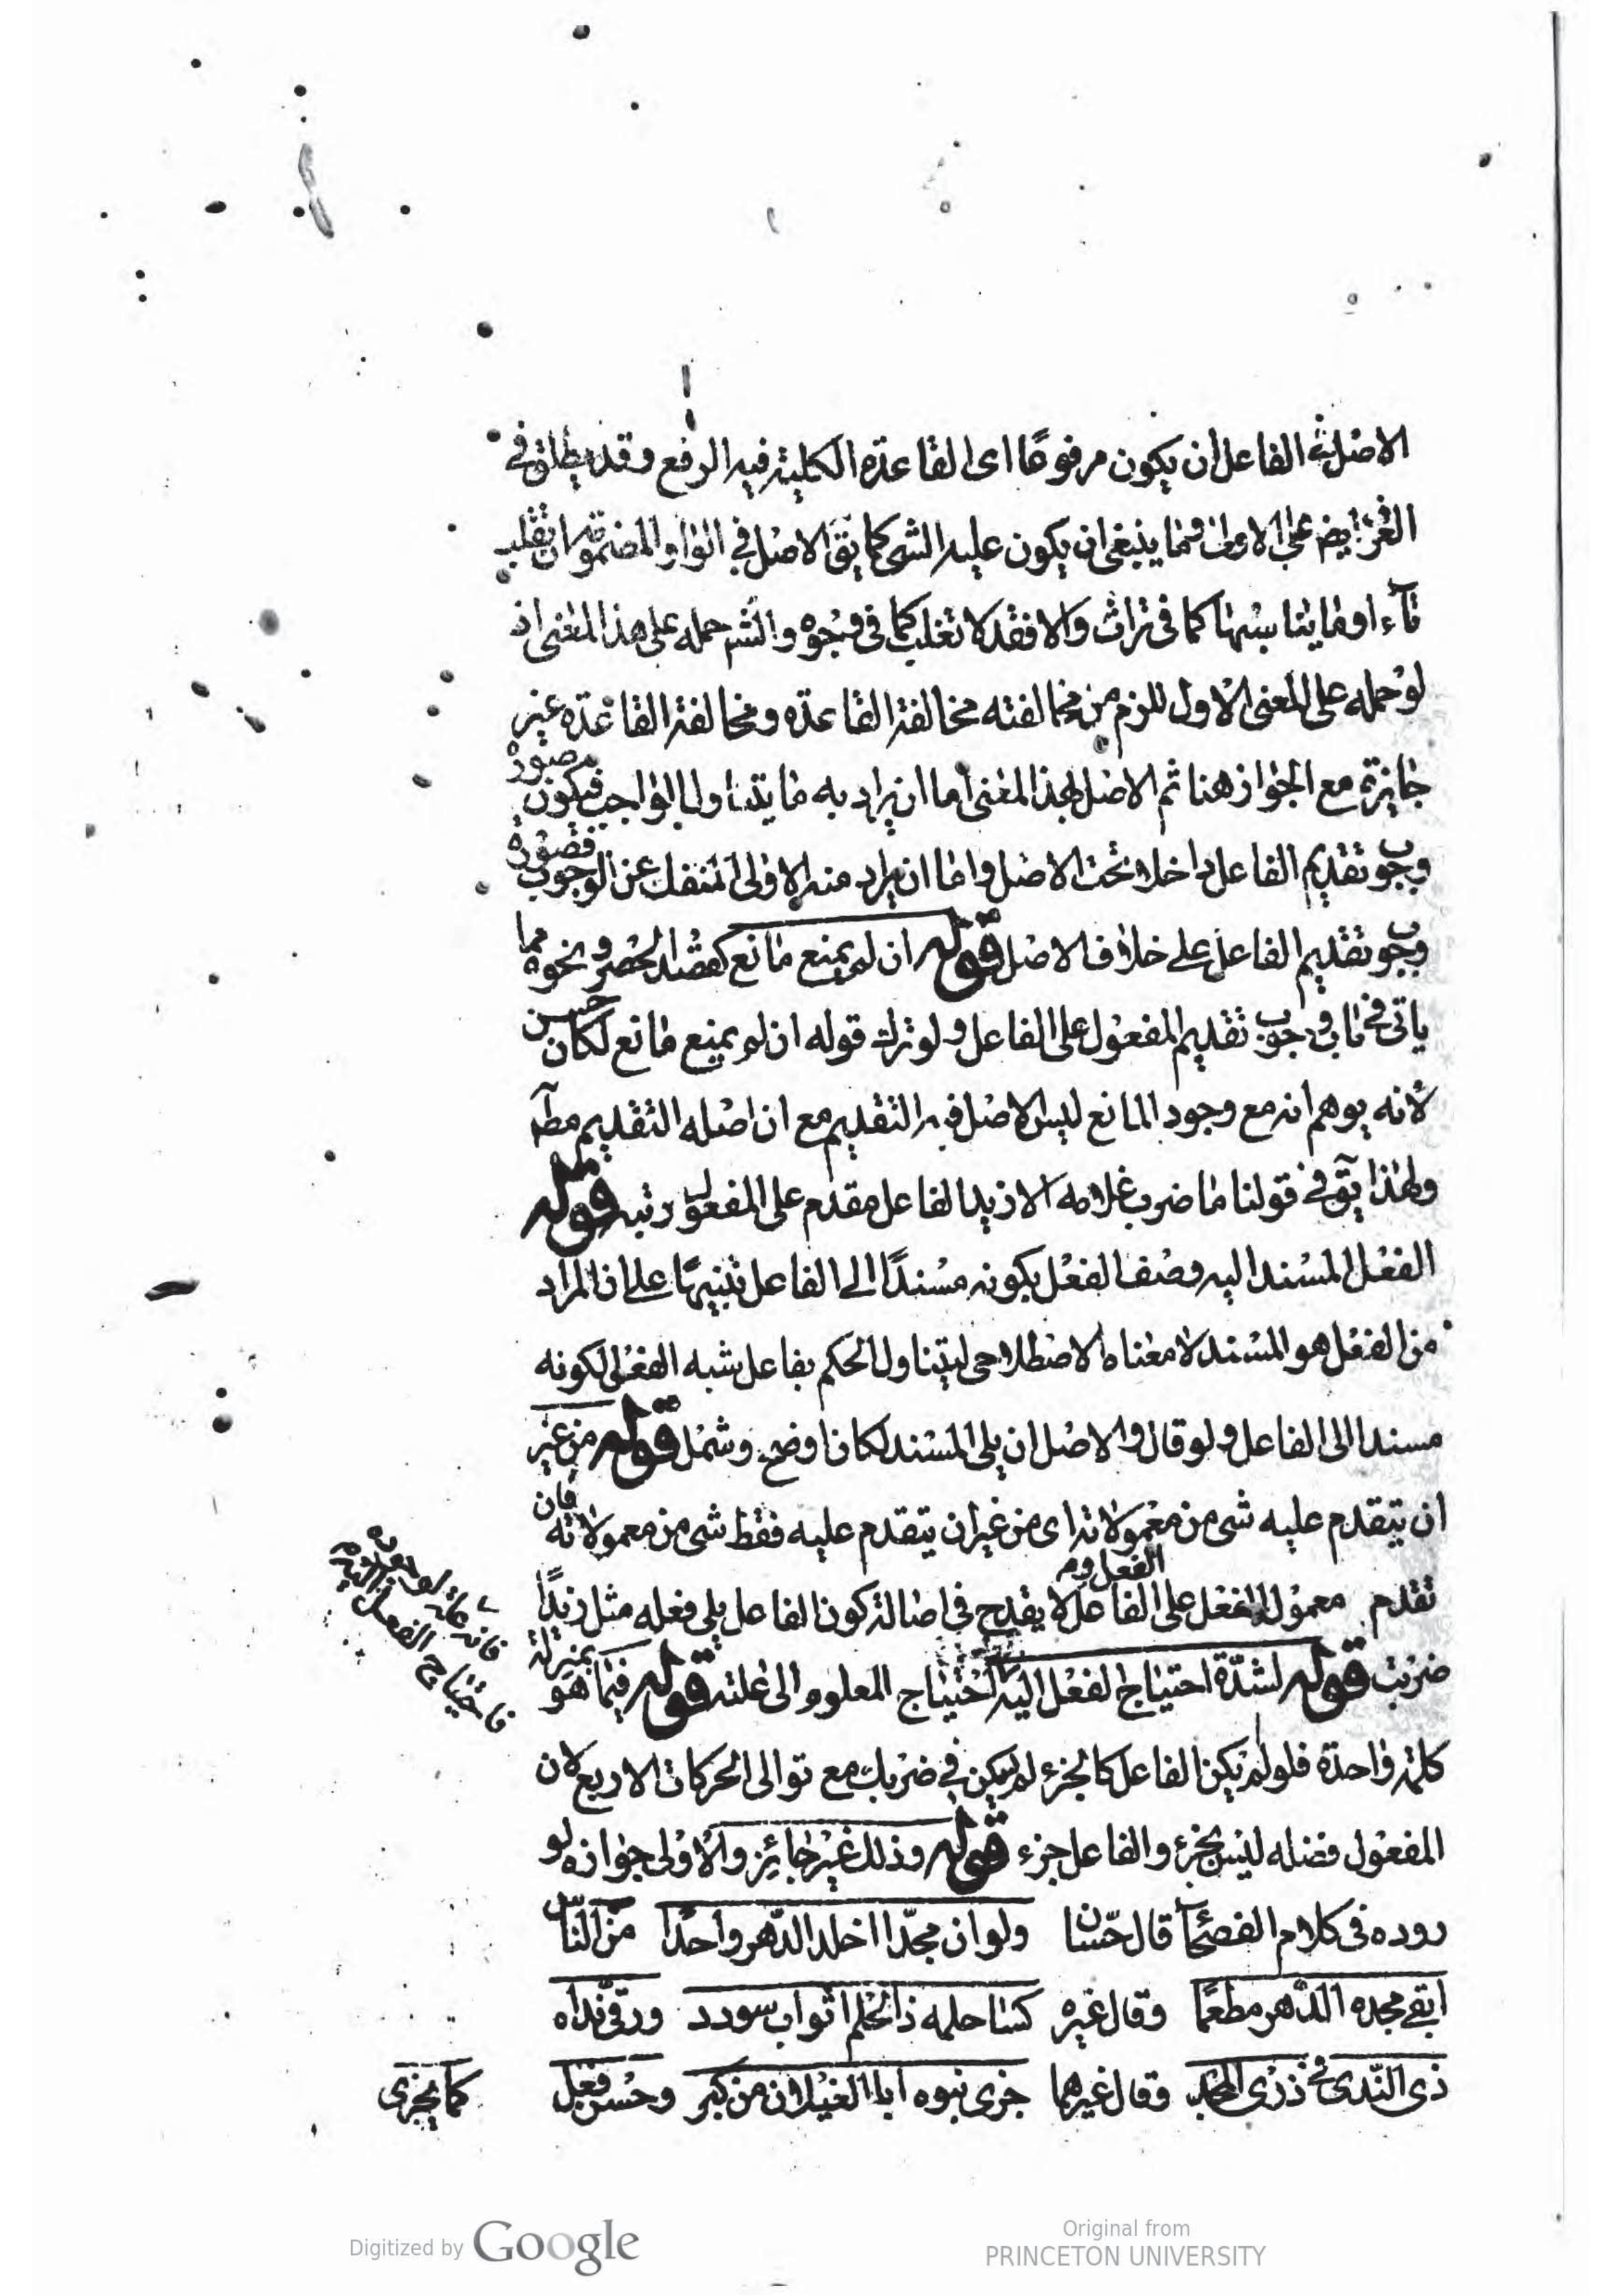 الاصل في الفاعل ان يكون مرفوعًا اى القاعدة الكلية فيه الرفع وقد يطلق في
على الاولى وما ينبغي ان يكون عليه الشى كما يق الاصل في الواو المضمومة ان تقلب
تآء او ما يناسبها كما فى تراث والا فقد لا تقلب كما فى وجوه والشم حمله على هذا المعنى اذ
لو حمله على المعنى الاول للزم من مخالفته مخالفة القاعدة ومخالفة القاعدة غير
جايزة مع الجواز هنا ثم الاصل بهذا المعنى اما ان يراد به ما يتناول الواجب فيكون صورة
وجوب تقديم الفاعل داخلا تحت الاصل واما ان يراد منه الاولى المنفك عن الوجوب فصورة
وجوب تقديم الفاعل على خلاف الاصل قوله ان لم يمنع مانع كقصد الحصر ونحوه مما
ياتى في وجوب تقديم المفعول على الفاعل ولو ترك قوله ان لم يمنع مانع لكان حسن
لانه يوهم انه مع وجود المانع ليس الاصل فيه التقديم مع ان اصله التقديم مطآ
ولهذا يق في قولنا ما ضرب غلامه الا زيد الفاعل مقدم على المفعول رتبه قوله
الفعل المسند اليه وصف الفعل بكونه مسندًا الى الفاعل تنبيهًا على ان المراد
من الفعل هو المسند لا معناه الاصطلاحى ليتناول الحكم بفاعل شبه الفعل لكونه
مسندا الى الفاعل ولو قال والاصل ان يلى المسند لكان اوضح وشمل قوله من غير
ان يتقدم عليه شى من معمولاته اى من غير ان يتقدم عليه فقط شى من معمولاته فان
تقدم معمول الفعل على الفاعل لا يقدح فى اصالة كون الفاعل يلى فعله مثل زيدًا
ضربت قوله لشدّة احتياج الفعل اليه احتياج المعلوم الى علته قوله فهما هو بمنزلة
كلمة واحدة فلو لم يكن الفاعل كالجزء لم يكن في ضربك مع توالى الحركات الاربع لان
المفعول فضله ليس بجزء والفاعل جزء قوله وذلك غير جائز والاولى جوازه لو
روده فى كلام الفصحآ قال حسّان ولو ان مجدّا اخلد الدّهر واحدًا من الناس
ابقى مجده الدّهر مطعمًا وقال غيره كسا حلمه ذا الحلم اثواب سودد ورقى نداه
ذى النّدى في ذرى المجد وقال غيرهما جزى بنوه ابا الغيلان من كبر وحسن فعل كما يجزى
فاحتياج الفعل
Digitized by Google
Original from
PRINCETON UNIVERSITY